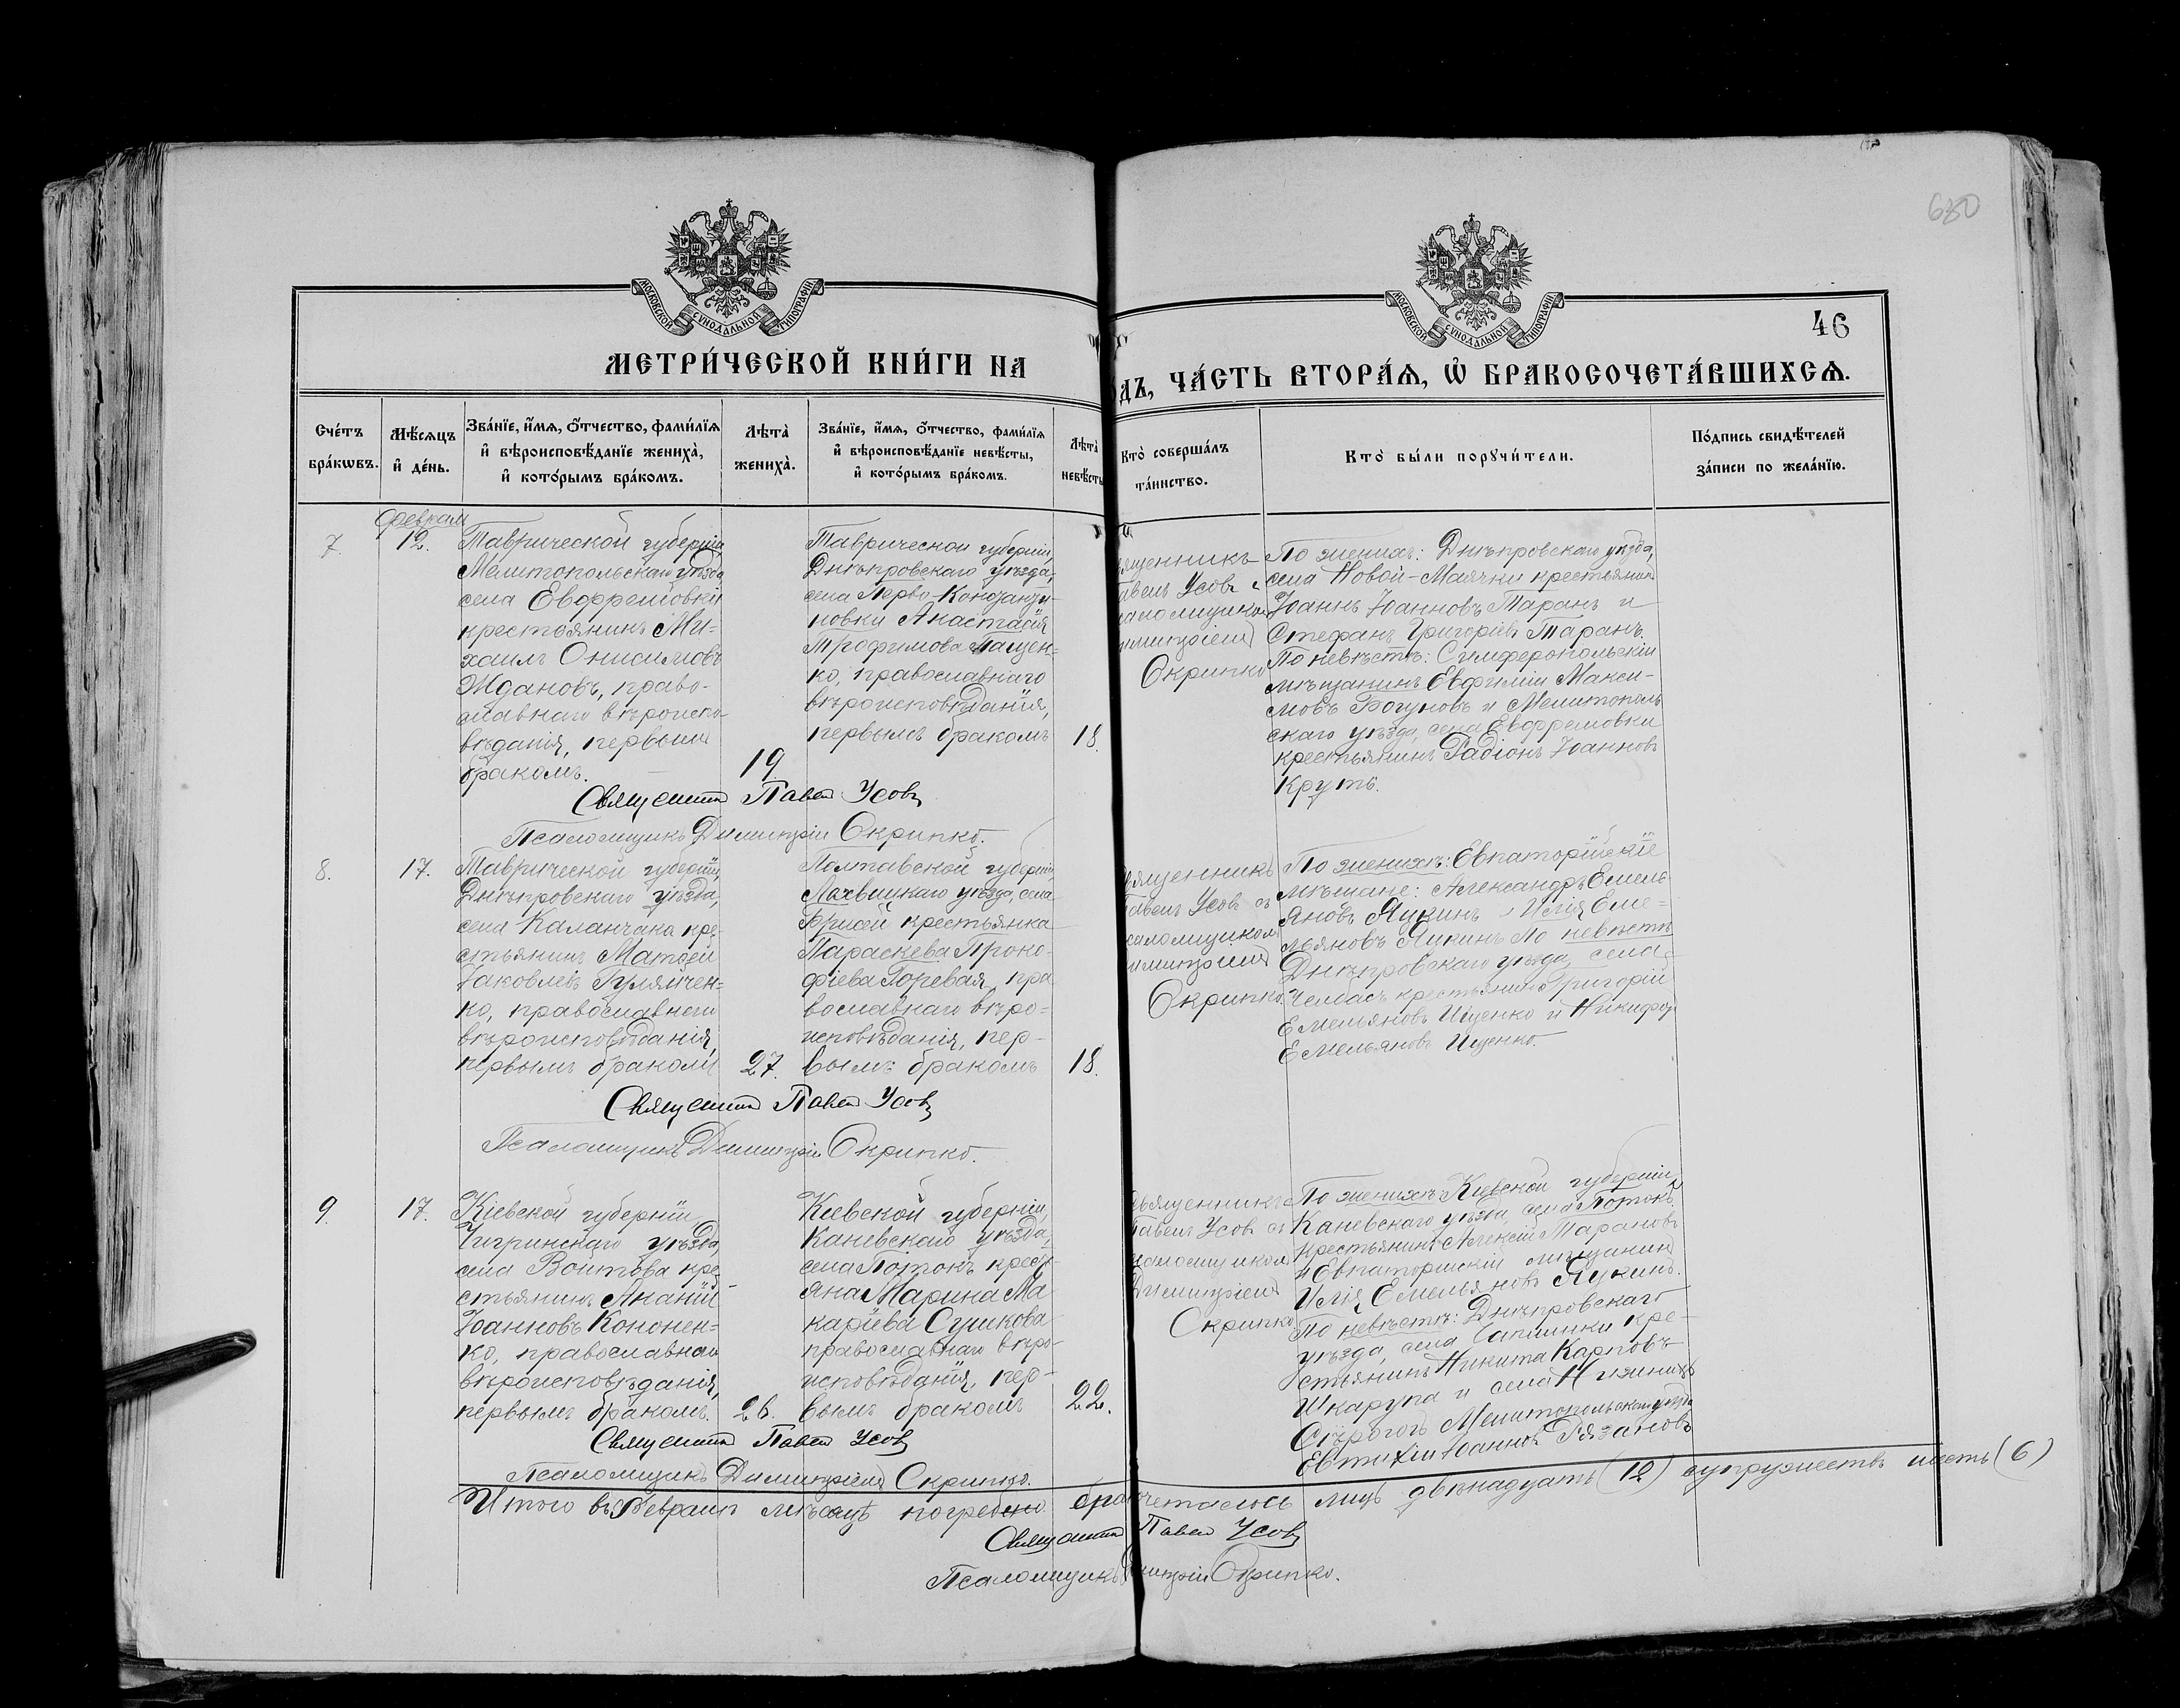 680
МОСКОВСКОЙ СУНОДАЛЬНОЙ ТИПОГРАФІИ
МОСКОВСКОЙ СУНОДАЛЬНОЙ ТИПОГРАФІИ
46
МЕТРИ́ЧЕСКОЙ КНИ́ГИ НА
ОДЪ, ЧА́СТЬ ВТОРА́Ѧ, Ѡ БРАКОСОЧЕТА́ВШИХСѦ.
Сче́тъ бра́кѡвъ.
Мѣ́сѧцъ и де́нь.
Зва́нїе, и́мѧ, о́тчество, фами́лїѧ и вѣроисповѣ́данїе жениха̀, и кото́рымъ бра́комъ.
Лѣта̀ жениха̀.
Зва́нїе, и́мѧ, о́тчество, фами́лїѧ и вѣроисповѣ́данїе невѣ́сты, и кото́рымъ бра́комъ.
Лѣта̀ невѣ́сты
Кто̀ соверша́лъ та́инство.
Кто̀ бы́ли порꙋчи́тели.
По́дпись свидѣ́телей за́писи по жела́нїю.
7.
Февраль
12.
Таврической губерніи,
Мелитопольскаго уѣзда,
села Евфремовки
крестьянинъ Ми-
хаилъ Онисимовъ
Ждановъ, право-
славнаго вѣроиспо-
вѣданія, первымъ
бракомъ.
19.
Таврической губерніи,
Днѣпровскаго уѣзда,
села Перво-Константи-
новки Анастасія
Трофимова Пащен-
ко, православнаго
вѣроисповѣданія,
первымъ бракомъ
18.
вященникъ
авелъ Усовъ с
аломщикомъ
имитріемъ
Скрипко
По женихѣ: Днѣпровскаго уѣзда,
села Новой-Маячки крестьяне
Іоаннъ Іоанновъ Таранъ и
Стефанъ Григоріевъ Таранъ.
По невѣстѣ: Симферопольскій
мѣщанинъ Евфимій Макси-
мовъ Богуновъ и Мелитополь
скаго уѣзда, села Евфремовки
крестьянинъ Радіонъ Іоанновъ
Круть.
Священникъ Павелъ Усовъ
Псаломщикъ Димитрій Скрипко.
8.
17.
Таврической губерніи,
Днѣпровскаго уѣзда,
села Каланчака кре-
стьянинъ Матѳей
Іаковлевъ Гуляйчен-
ко, православнаго
вѣроисповѣданія,
первымъ бракомъ
27.
Полтавской губерніи,
Лохвицкаго уѣзда, села
крестьянка
Параскева Проко-
фіева Горевая, пра
вославнаго вѣро-
исповѣданія, пер-
вымъ бракомъ
18.
вященникъ
Павелъ Усовъ съ
саломщикомъ
имитріемъ
Скрипко.
По женихѣ: Евпаторійскіе
мѣщане: Александръ Емель
яновъ Яцкинъ и Илія Еме-
льяновъ Яцкинъ По невѣстѣ
Днѣпровскаго уѣзда, села
Челбасъ крестьяне Григорій
Емельяновъ Ищенко и Никифоръ
Емельяновъ Ищенко.
Священникъ Павелъ Усовъ
Псаломщикъ Димитрій Скрипко.
9.
17.
Кіевской губерніи,
Чигринскаго уѣзда,
села Воитова кре-
стьянинъ Ананій
Іоанновъ Кононен-
ко, православнаго
вѣроисповѣданія,
первымъ бракомъ.
26.
Кіевской губерніи,
Каневскаго уѣзда,
села Потокъ крест-
яна Марина Ма
каріева Сушкова
православнаго вѣро-
исповѣданія, пер-
вымъ бракомъ
22.
вященникъ
Павелъ Усовъ съ
саломщикомъ
Димитріемъ
Скрипко
По женихѣ: Кіевской губерніи,
Каневскаго уѣзда, села Потокъ
крестьянинъ Алексій Марановъ
и Евпаторійскій мѣщанинъ
Илія Емельяновъ Яцкинъ.
По невѣстѣ: Днѣпровскаго
уѣзда, села Чаплинки кре-
стьянинъ Никита Карповъ
Шкарупа и села Нижнихъ
Сѣрогозъ Мелитопольскаго уѣзда
Евтихій Іоанновъ Рязановъ
Священникъ Павелъ Усовъ
Псаломщикъ Димитріемъ Скрипко.
Итого въ Февралѣ мѣсяцѣ погребено бракочеталось лицъ двѣнадцать (12) супружествъ шесть (6)
Священникъ Павелъ Усовъ
Псаломщикъ Димитрій Скрипко.